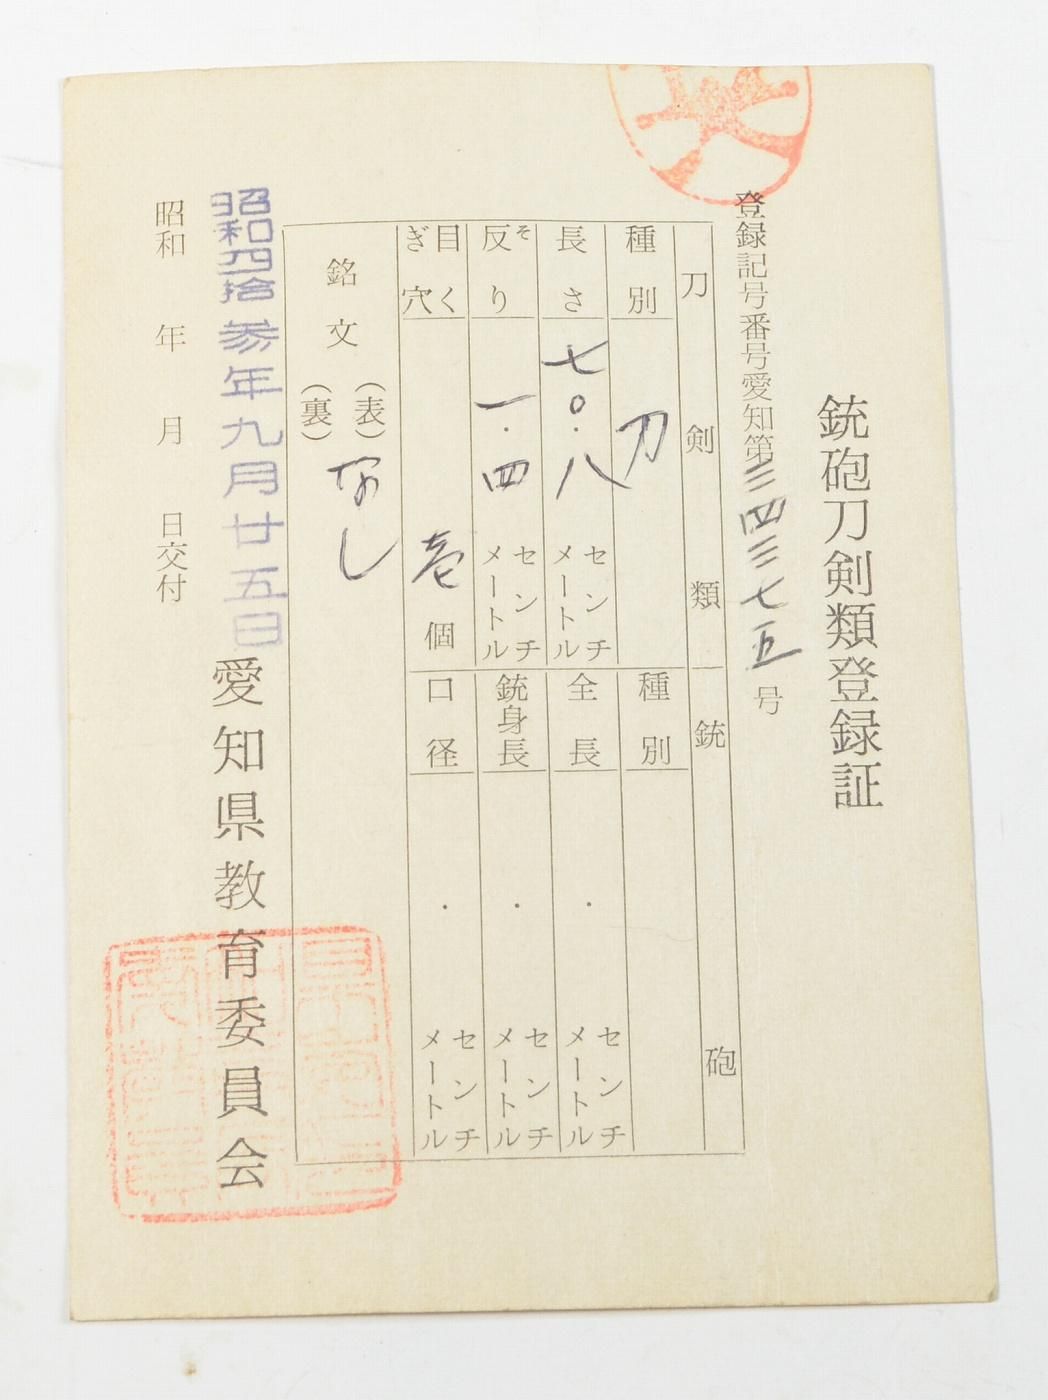 銃砲刀剣類登録証
登録記号番号愛知第三四三七五号
刀剣類
種別 刀
長さ 七〇・八 センチメートル
反り 一・四 センチメートル
そ
目くぎ穴 壱個
銃砲
種別
全長 ・ センチメートル
銃身長 ・ センチメートル
口径 ・ センチメートル
銘文
(表) なし
(裏)
昭和四拾参年九月廿五日
愛知県教育委員会
昭和 年 月 日交付